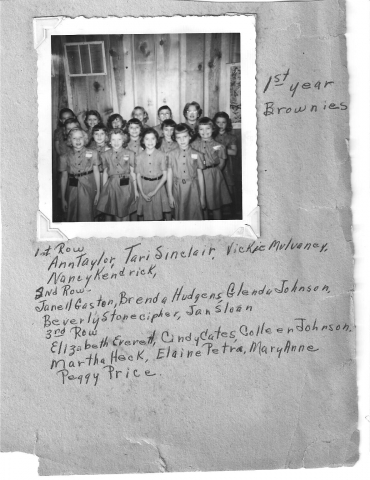 1st year
Brownies
1st Row
Ann Taylor, Tari Sinclair, Vickie Mulvaney,
Nancy Kendrick,
2nd Row-
Janell Gaston, Brenda Hudgens, Glenda Johnson,
Beverly Stonecipher, Jan Sloan
3rd Row
Elizabeth Everett, Cindy Cates, Colleen Johnson.
Martha Heck, Elaine Petra, Mary Anne
Peggy Price.